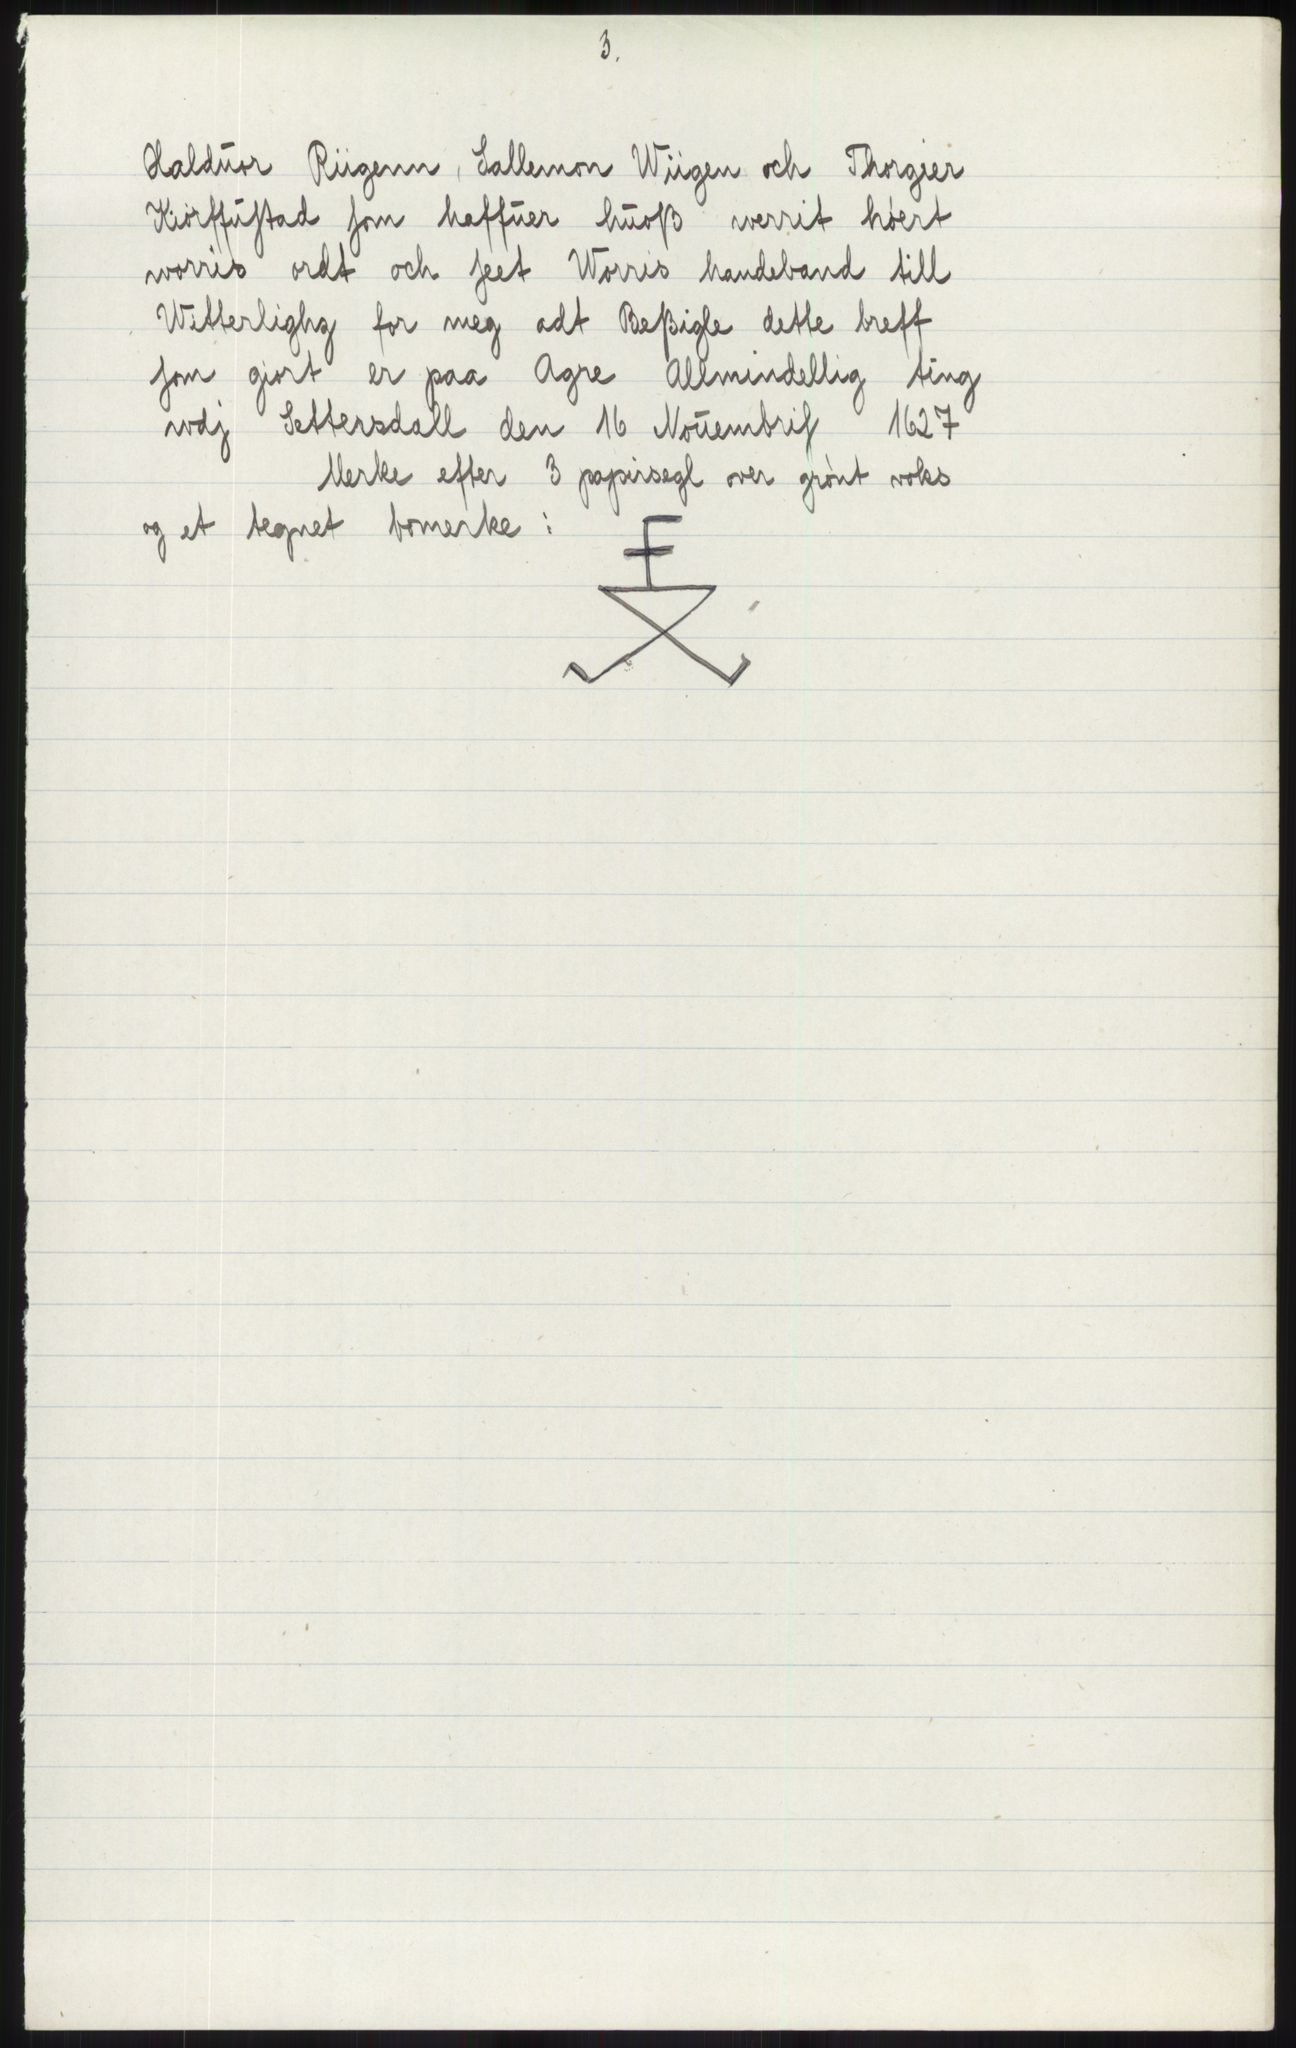 3.
Haldŭor Riigenn, Sallemon Wiigen och Thorgier
Kiørffŭstad som haffŭer hŭoß werrit høert
worris ordt och seet Worris handeband till
Witterlighg for meg adt Beßigle dette breff
som giort er paa Agre Allmindellig ting
wdj Settersdall den 16 Noŭembris 1627
Merke efter 3 papirsegl over grønt voks
og et tegnet bomerke: